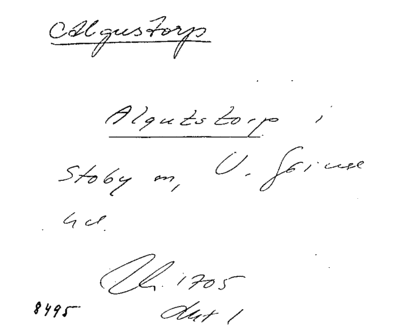 Algustorp
Algutstorp i
Stoby sn, V. Göinge
hd.
1705
8495